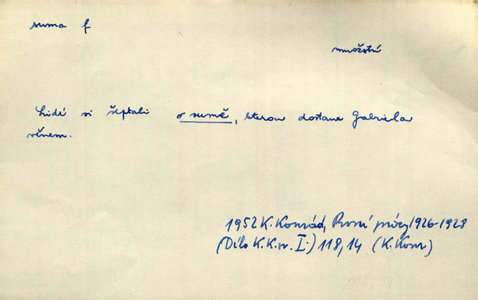 suma f
množství
Lidé si šeptali o sumě, kterou dostane Gabriela
věnem.
1952 K. Konrád, První prózy 1926-1928
(Dílo K. K. sv. I.) 118, 14 (K. Konr)